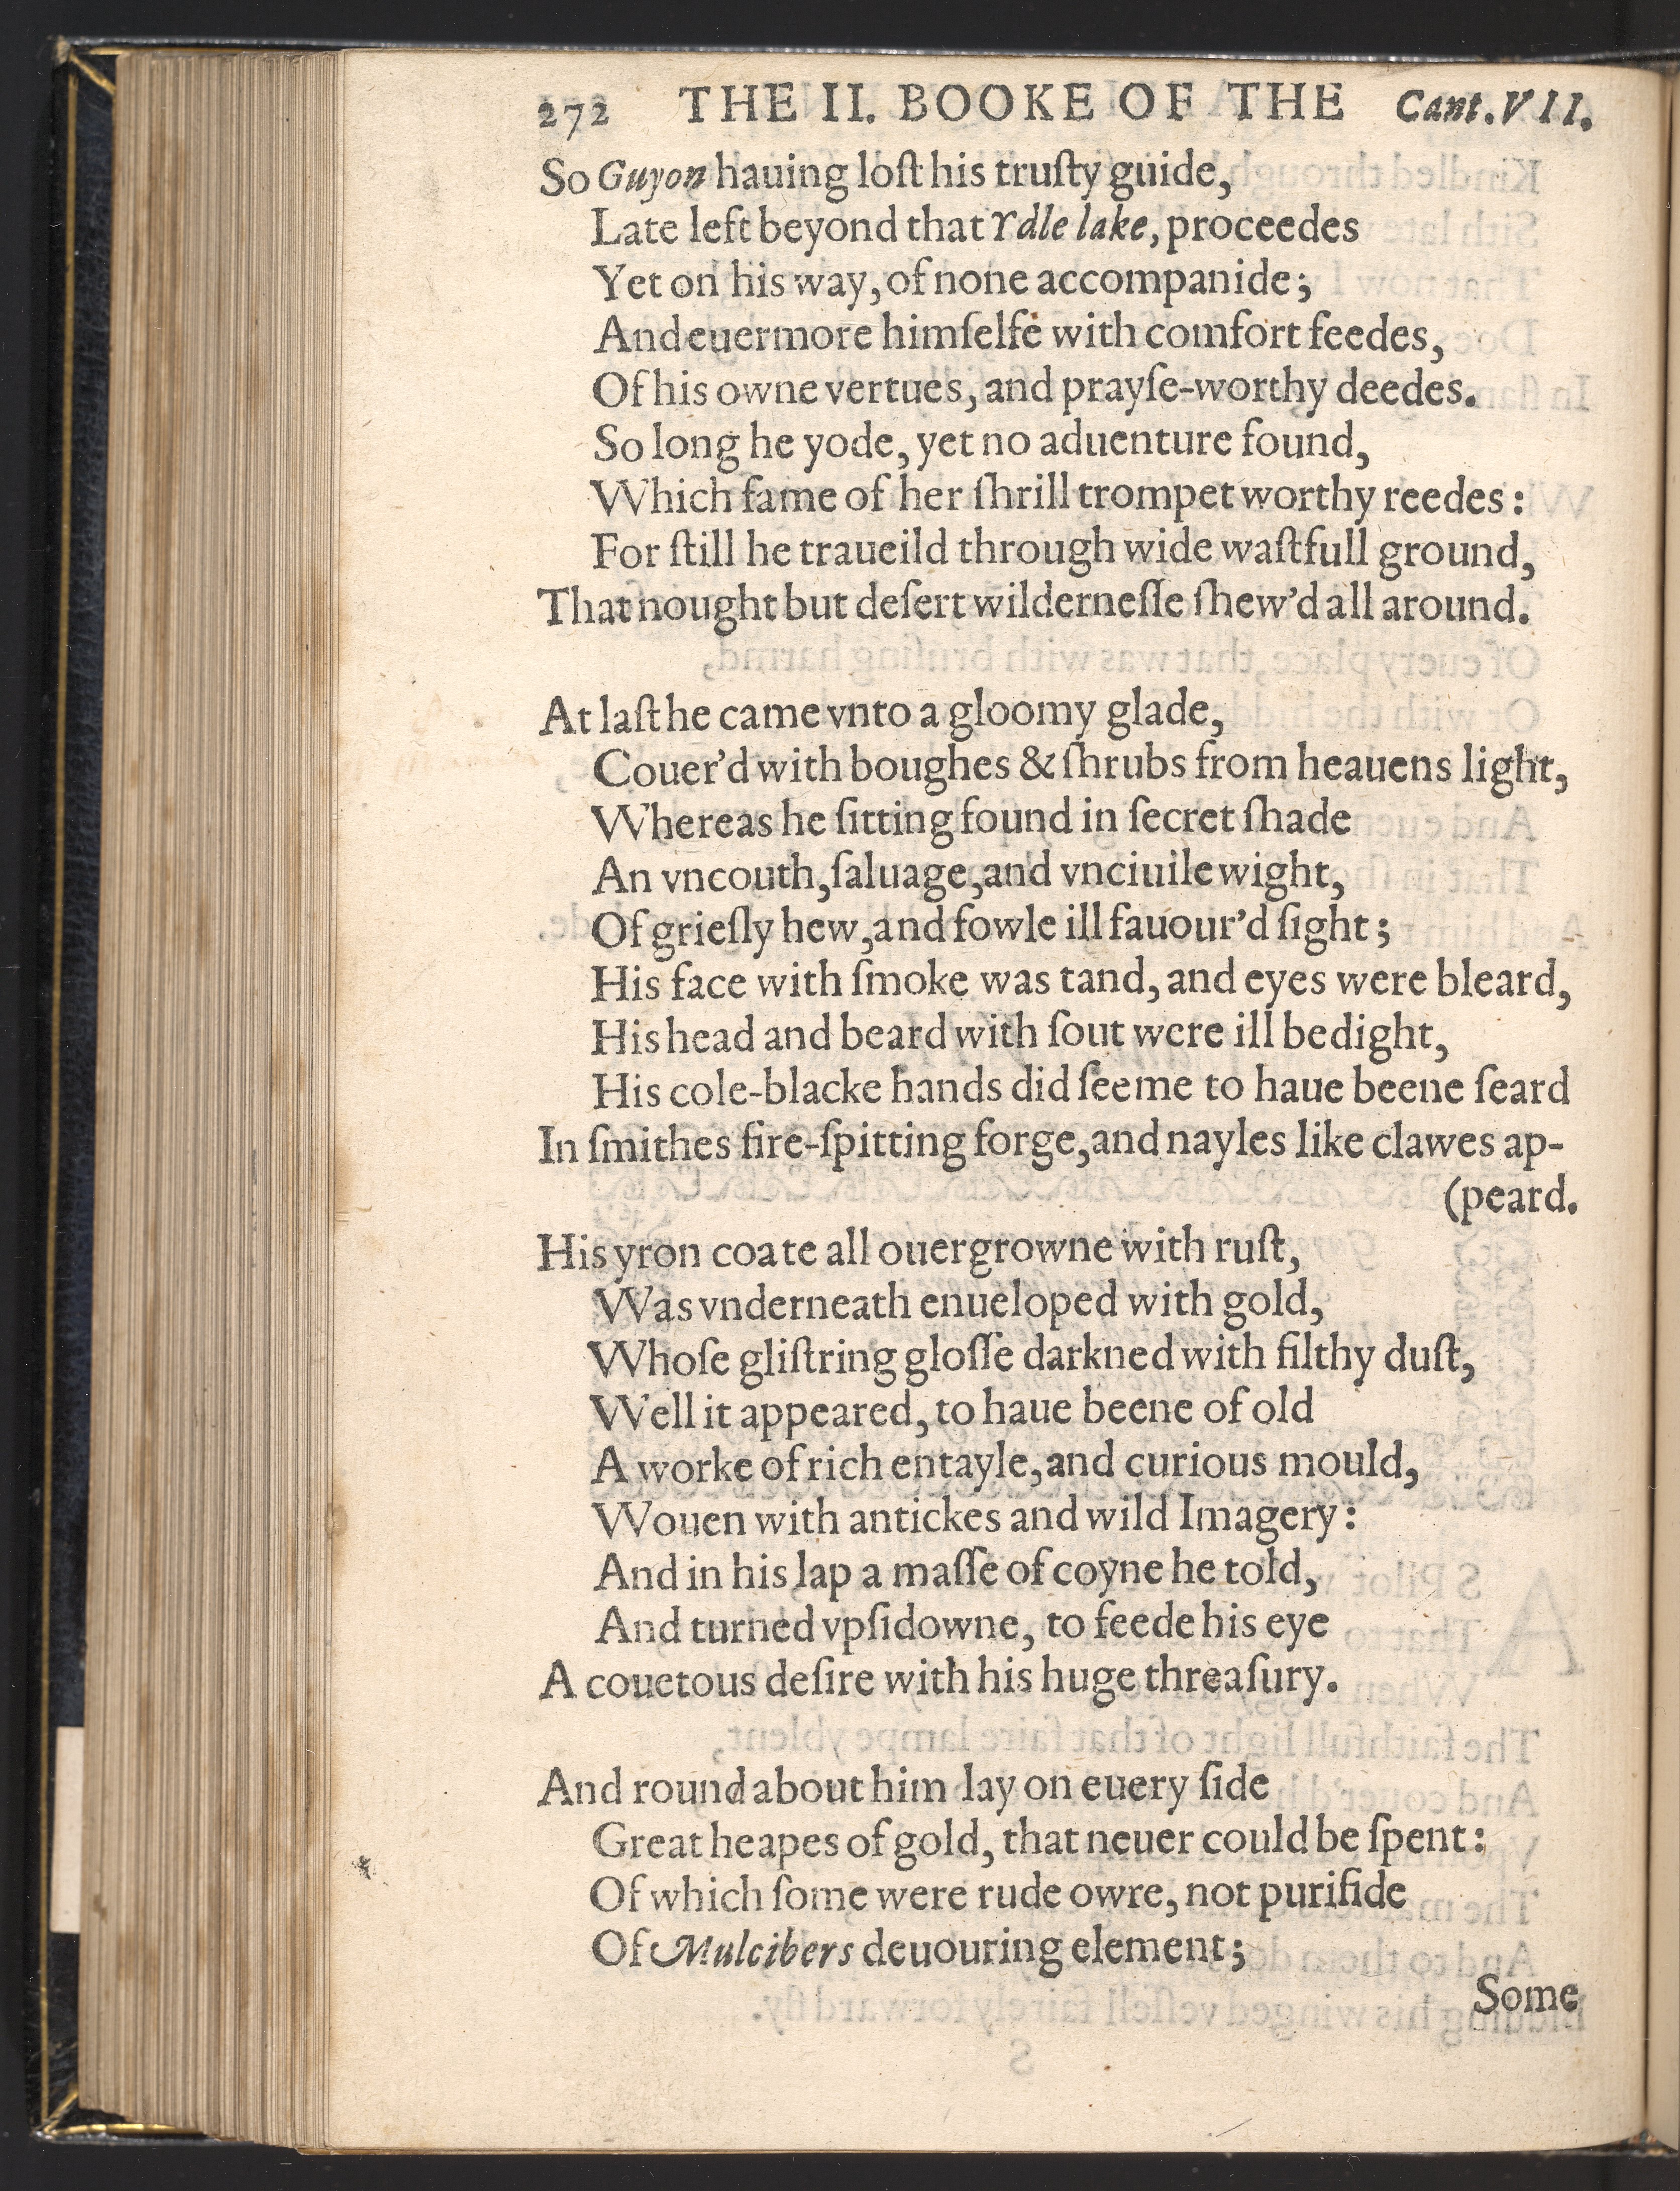 272 THE II. BOOKE OF THE Cant. VII.
So Guyon hauing loſt his truſty guide,
Late left beyond that Ydle lake, proceedes
Yet on his way, of none accompanide;
And euermore himſelfe with comfort feedes,
Of his owne vertues, and prayſe-worthy deedes.
So long he yode, yet no aduenture found,
Which fame of her ſhrill trompet worthy reedes:
For ſtill he traueild through wide waſtfull ground,
That nought but deſert wilderneſſe ſhew'd all around.
At laſt he came vnto a gloomy glade,
Couer'd with boughes & ſhrubs from heauens light,
Whereas he ſitting found in ſecret ſhade
An vncouth, ſaluage, and vnciuile wight,
Of grieſly hew, and fowle ill fauour'd ſight;
His face with ſmoke was tand, and eyes were bleard,
His head and beard with ſout were ill bedight,
His cole-blacke hands did ſeeme to haue beene ſeard
In ſmithes fire-ſpitting forge, and nayles like clawes ap-
(peard.
His yron coate all ouergrowne with ruſt,
Was vnderneath enueloped with gold,
Whoſe gliſtring gloſſe darkned with filthy duſt,
Well it appeared, to haue beene of old
A worke of rich entayle, and curious mould,
Wouen with antickes and wild Imagery:
And in his lap a maſſe of coyne he told,
And turned vpſidowne, to feede his eye
A couetous deſire with his huge threaſury.
And round about him lay on euery ſide
Great heapes of gold, that neuer could be ſpent:
Of which ſome were rude owre, not purifide
Of Mulcibers deuouring element;
Some